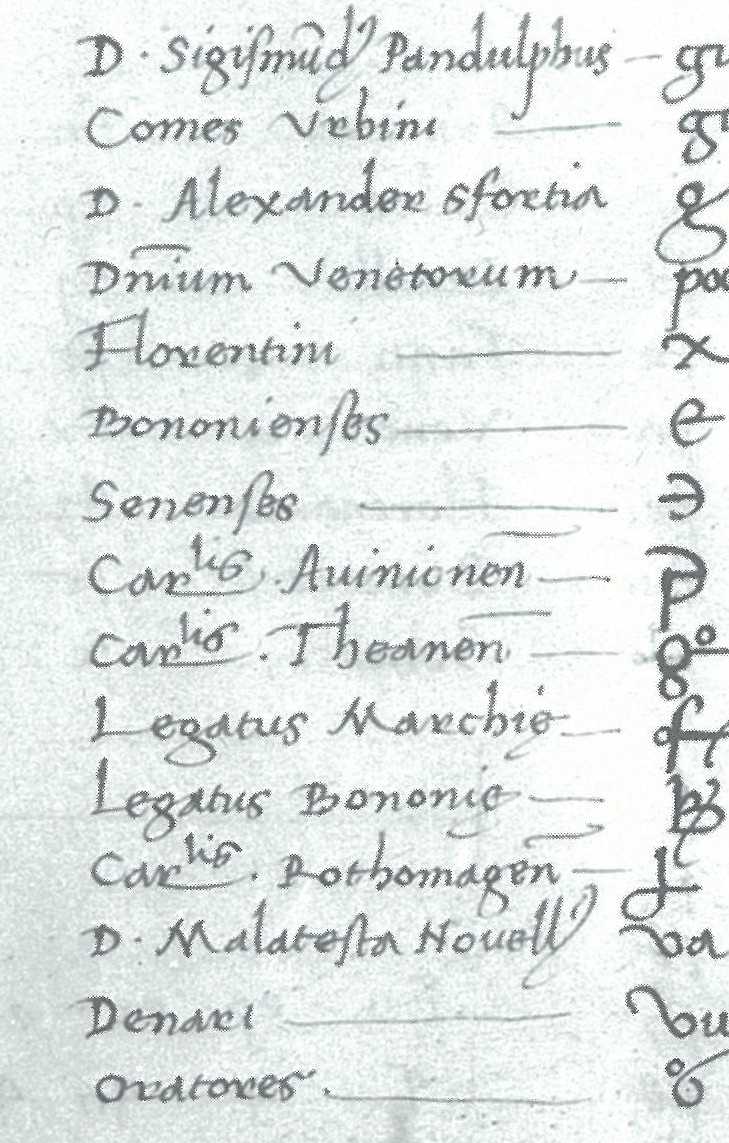 D · Sigiſmūd Pandulphus — gu
Comes Vrbini —— g
D · Alexander Sfortia g
Dn̄ium Venetorum — po
Florentini —— x
Bononienſes —— e
Senenſes ——
Carlis · Auinionen̄ — p
Carlis · Theanen̄ —
Legatus Marchię — f
Legatus Bononię — b
Carlis · Rothomagen̄ —
D · Malateſta Nouell va
Denari —— vu
Oratores · ——